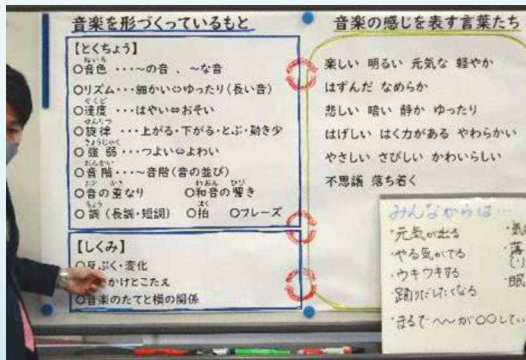 音楽を形づくっているもと
【とくちょう】
○音色 ・・・〜の音、〜な音
○リズム・・・細かい⇔ゆったり(長い音)
○速度 ・・・はやい⇔おそい
○旋律 ・・・上がる・下がる・とぶ・動き少
○強弱 ・・・つよい⇔よわい
○音階・・・〜音階(音の並び)
○音の重なり ○和音の響き
○調(長調・短調) ○拍 ○フレーズ
【しくみ】
○反ぷく・変化
かけとこたえ
○音楽のたてと横の関係
音楽の感じを表す言葉たち
楽しい 明るい 元気な 軽やか
はずんだ なめらか
悲しい 暗い 静か ゆったり
はげしい はく力がある やわらかい
やさしい さびしい かわいらしい
不思議 落ち着く
みんなからは…
・元気が出る
・やる気がでる
・ウキウキする
・踊りだしたくなる
・まるで〜〜が○○してい